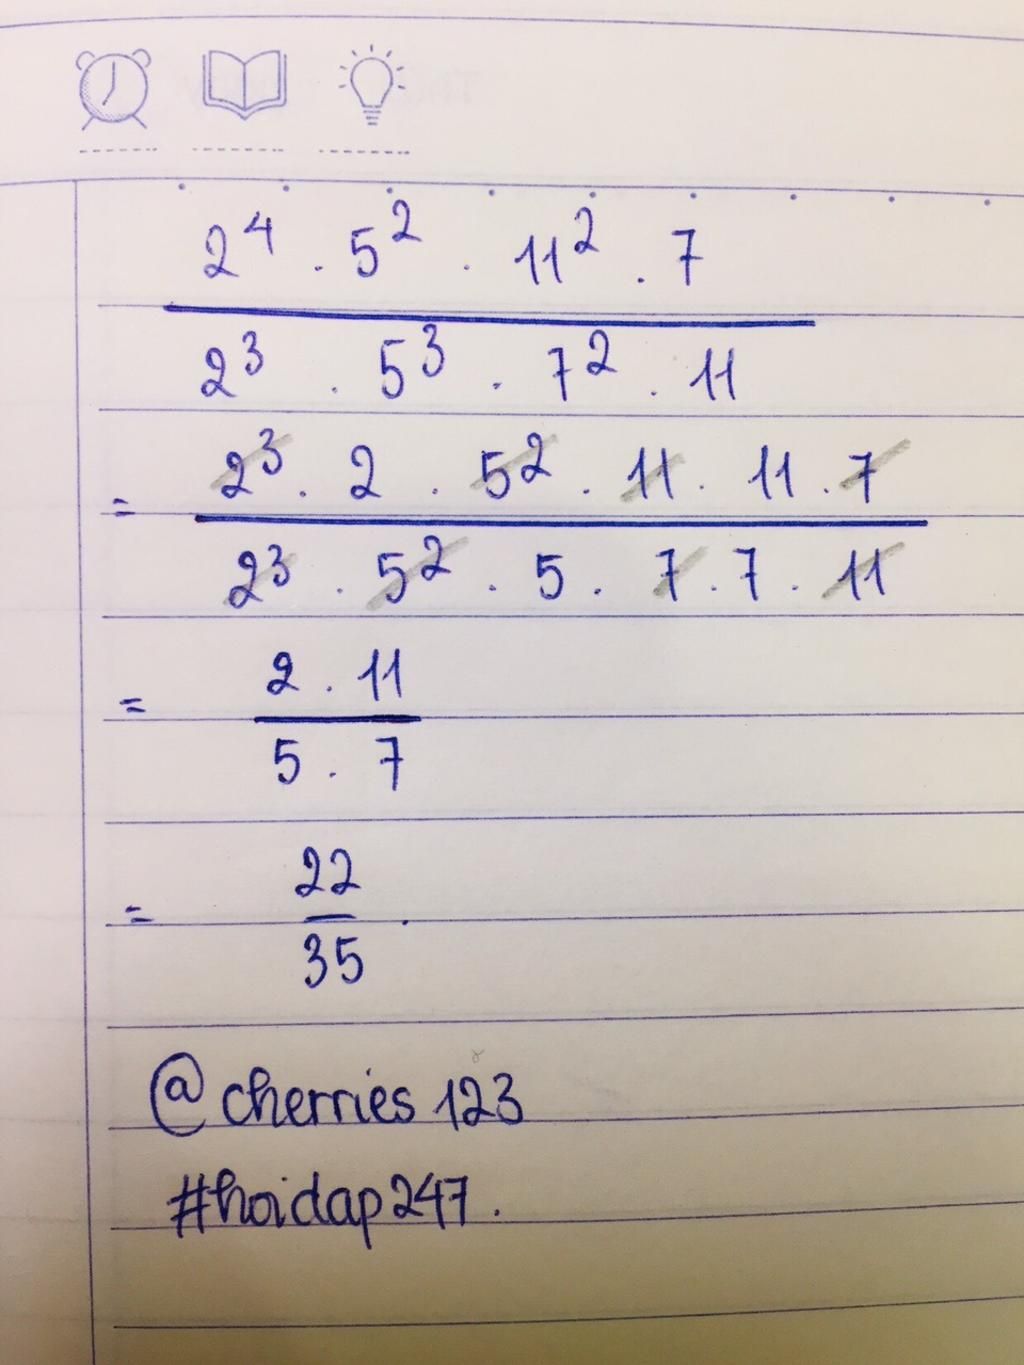 2⁴ . 5² . 11² . 7
2³ . 5³ . 7² . 11
= 2³ . 2 . 5² . 11 . 11 . 7
2³ . 5² . 5 . 7 . 7 . 11
= 2 . 11
5 . 7
= 22
35 .
@cherries 123
#hoidap247.